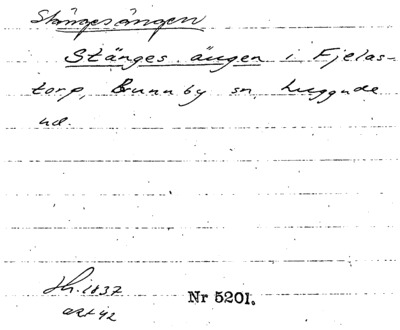 Stängesängen
Stänges ängen i Fjelas-
torp, Brunnby sn, Luggude
hd.
Lh. 1837
akt 42
Nr 5201.